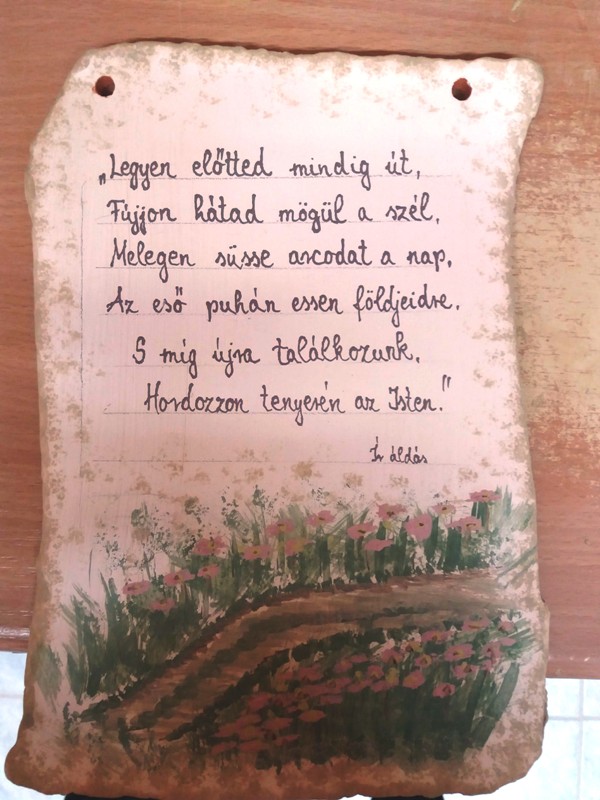 „Legyen előtted mindig út,
Fújjon hátad mögül a szél,
Melegen süsse arcodat a nap,
Az eső puhán essen földjeidre,
S míg újra találkozunk,
Hordozzon tenyerén az Isten."
Ír áldás